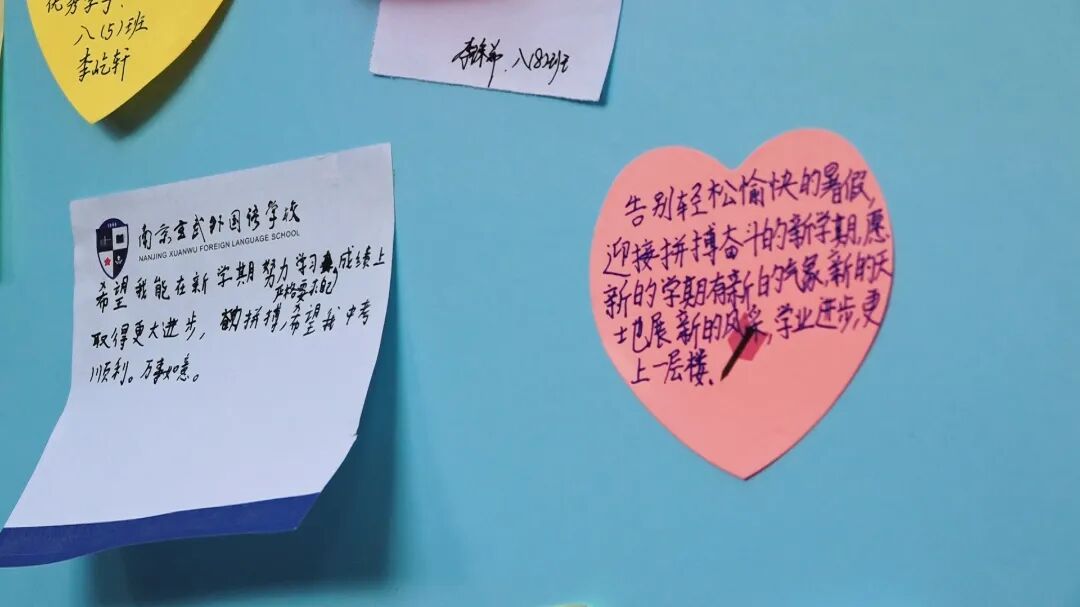 优秀学子!
八(5)班
李屹轩
八(8)班
南京玄武外国语学校
NANJING XUANWU FOREIGN LANGUAGE SCHOOL
希望我能在新学期努力学习,成绩上
取得更大进步,
拼搏,希望我中考
顺利。万事如意。
告别轻松愉快的暑假,
迎接拼搏奋斗的新学期,愿
新的学期有新的气象,新的天
土也展新的风采,学业进步,更
上一层楼.